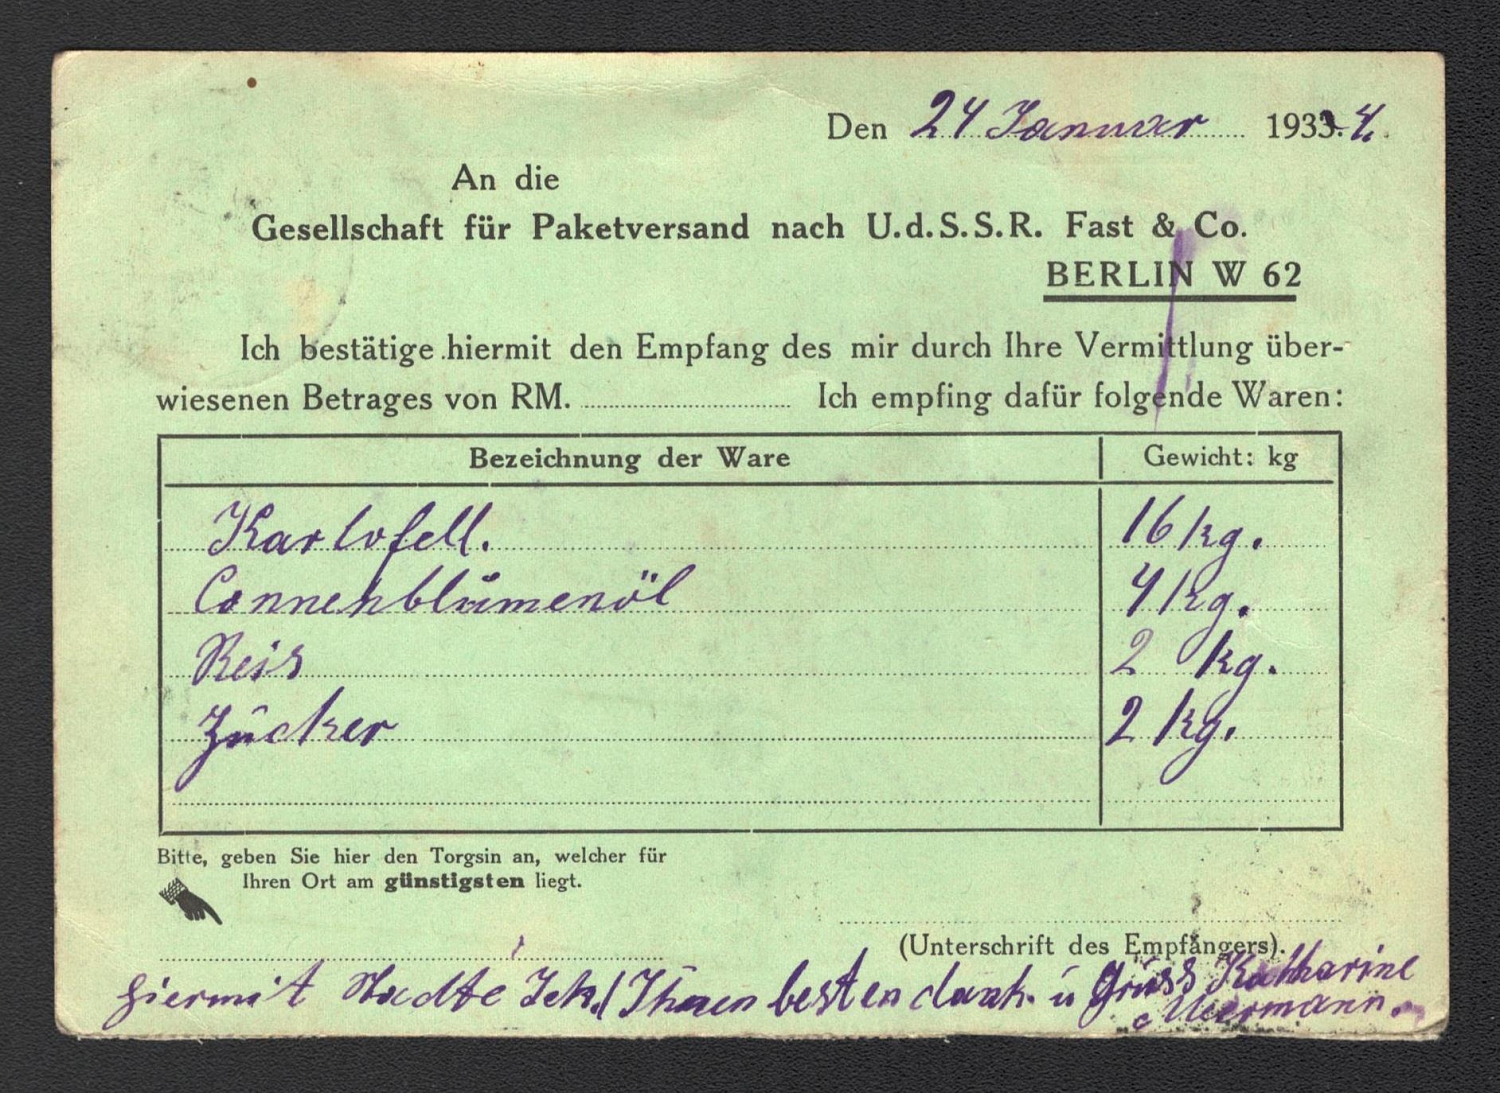 Den 24 Januar 1933. 4.
An die
Gesellschaft für Paketversand nach U.d.S.S.R. Fast & Co.
BERLIN W 62
Ich bestätige hiermit den Empfang des mir durch Ihre Vermittlung über-
wiesenen Betrages von RM. Ich empfing dafür folgende Waren:
Bezeichnung der Ware Gewicht: kg
Kartofell. 16 kg.
Connenblumenöl 4 kg.
Reis 2 kg.
Zucker 2 kg.
Bitte, geben Sie hier den Torgsin an, welcher für
Ihren Ort am günstigsten liegt.
(Unterschrift des Empfängers).
hiermit Ihnen besten dank. u Grüss Katharine